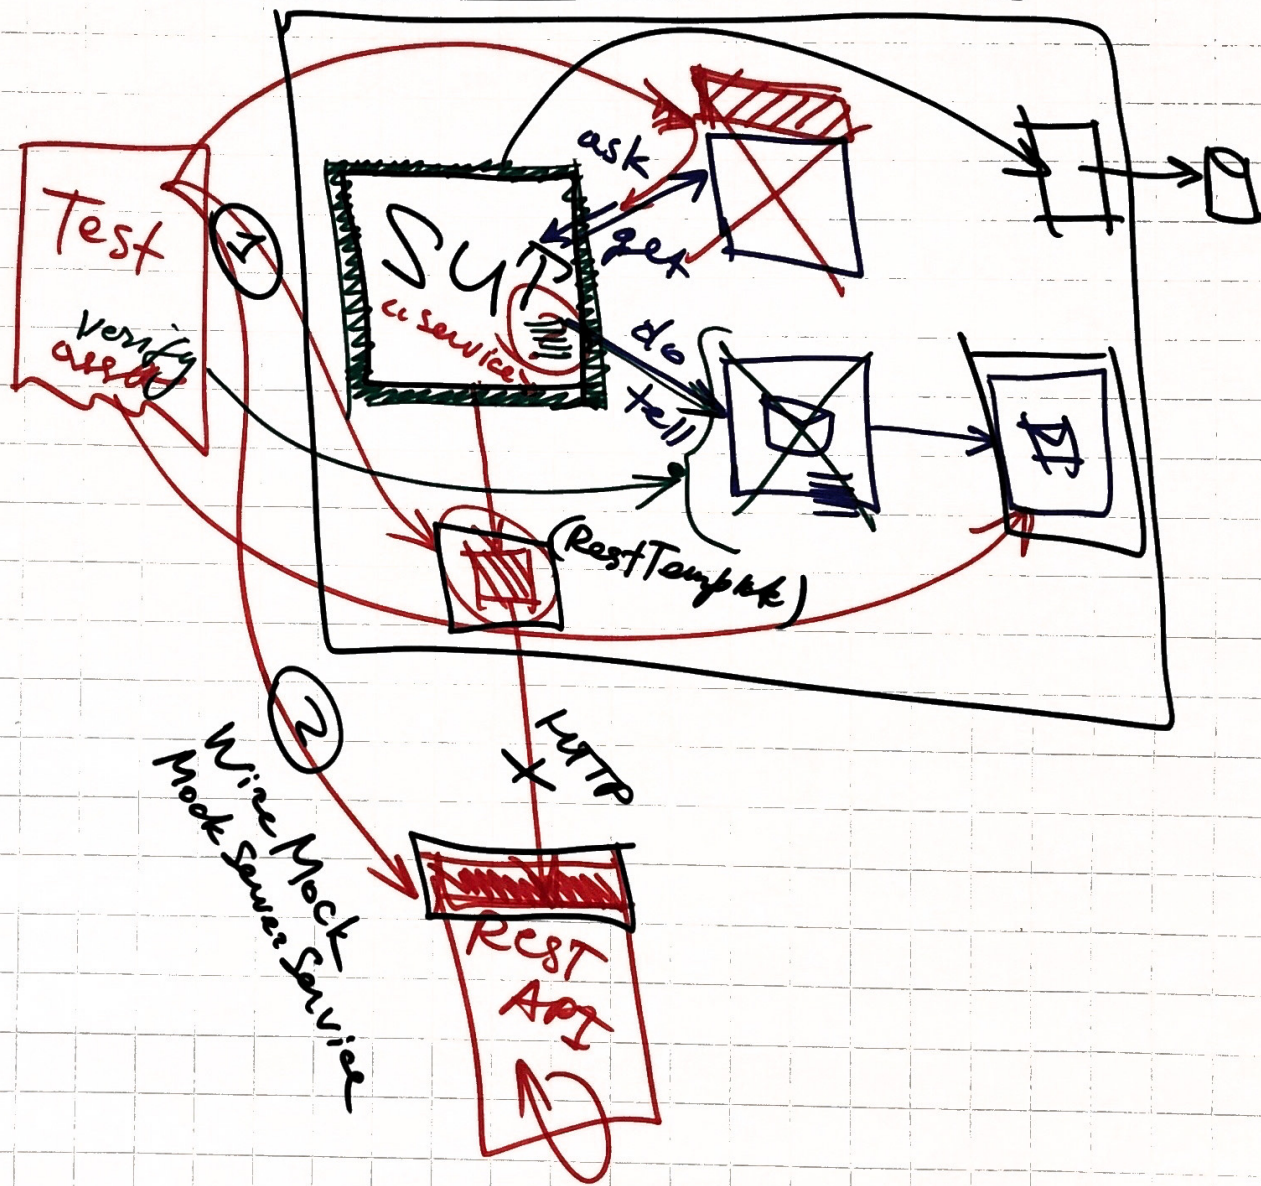 Test
verify
1
SUT
service
ask
get
do
tell
(RestTemplate)
2
HTTP
WireMock
MockServerService
REST
API